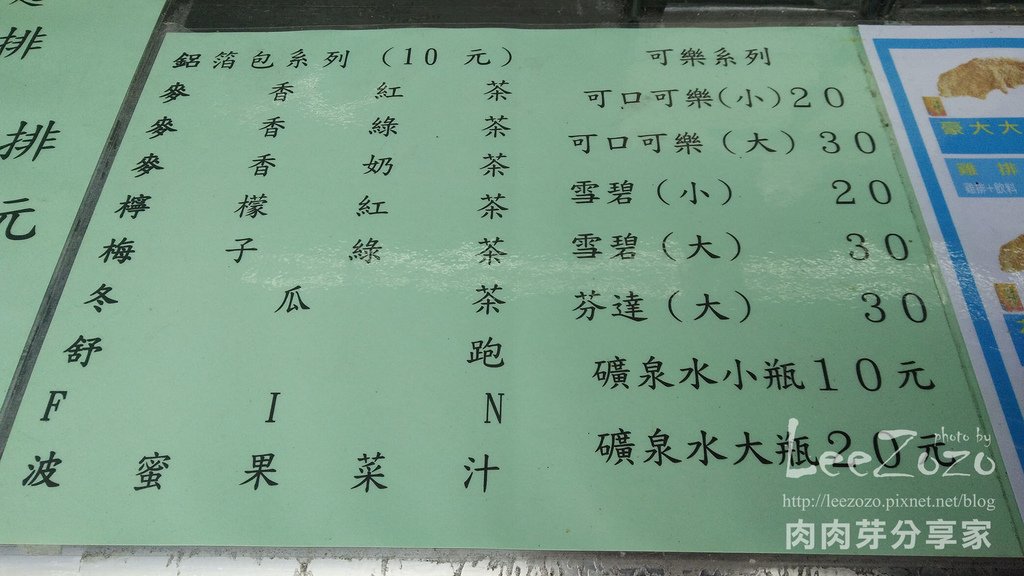 排
排
元
鋁箔包系列（10 元）
麥香紅茶
麥香綠茶
麥香奶茶
檸檬紅茶
梅子綠茶
冬瓜茶
舒跑
FIN
波蜜果菜汁
可樂系列
可口可樂(小)20
可口可樂（大）30
雪碧（小） 20
雪碧（大） 30
芬達（大） 30
礦泉水小瓶10元
礦泉水大瓶20元
豪大大
雞排
雞排+飲料
photo by
LeeZozo
http://leezozo.pixnet.net/blog
肉肉芽分享家